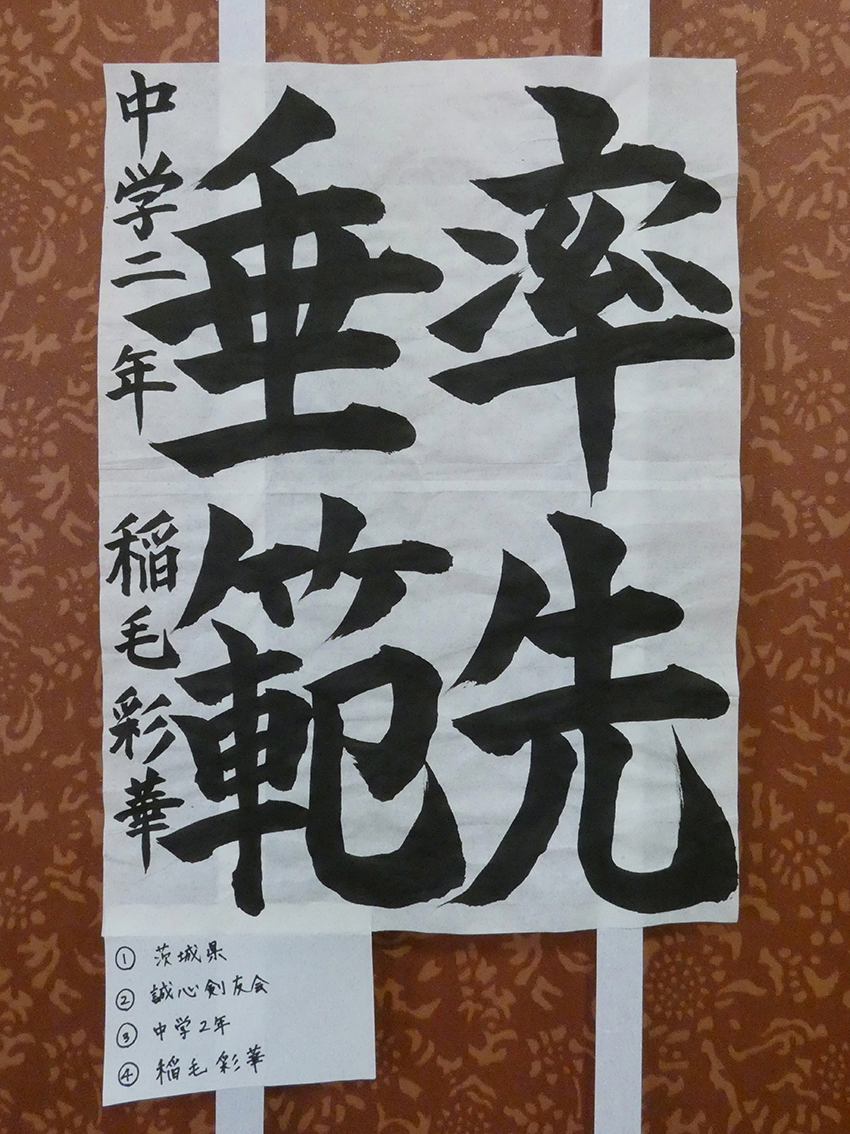 率先
垂範
中学二年 稲毛彩華
① 茨城県
② 誠心剣友会
③ 中学2年
④ 稲毛彩華